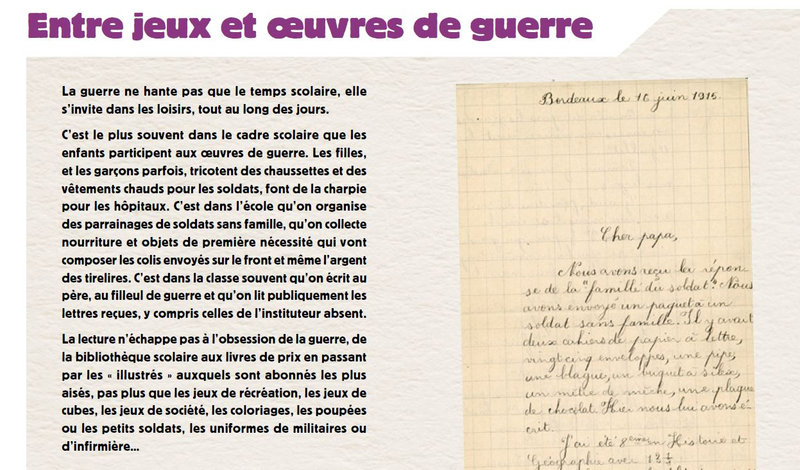 Entre jeux et œuvres de guerre
La guerre ne hante pas que le temps scolaire, elle
s'invite dans les loisirs, tout au long des jours.
C'est le plus souvent dans le cadre scolaire que les
enfants participent aux œuvres de guerre. Les filles,
et les garçons parfois, tricotent des chaussettes et des
vêtements chauds pour les soldats, font de la charpie
pour les hôpitaux. C'est dans l'école qu'on organise
des parrainages de soldats sans famille, qu'on collecte
nourriture et objets de première nécessité qui vont
composer les colis envoyés sur le front et même l'argent
des tirelires. C'est dans la classe souvent qu'on écrit au
père, au filleul de guerre et qu'on lit publiquement les
lettres reçues, y compris celles de l'instituteur absent.
La lecture n'échappe pas à l'obsession de la guerre, de
la bibliothèque scolaire aux livres de prix en passant
par les « illustrés » auxquels sont abonnés les plus
aisés, pas plus que les jeux de récréation, les jeux de
cubes, les jeux de société, les coloriages, les poupées
ou les petits soldats, les uniformes de militaires ou
d'infirmière...
Bordeaux le 16 juin 1915
Cher papa,
Nous avons reçu la répon-
se de la "famille du soldat". Nous
avons envoyé un paquet à un
soldat sans famille. Il y avait
deux cahiers de papier à lettre,
vingt cinq enveloppes, une pipe,
une blague, un briquet à silex,
un mètre de mèche, une plaque
de chocolat. Hier nous lui avons é-
crit.
J'ai été 8ème en Histoire et
Géographie avec 13 ½